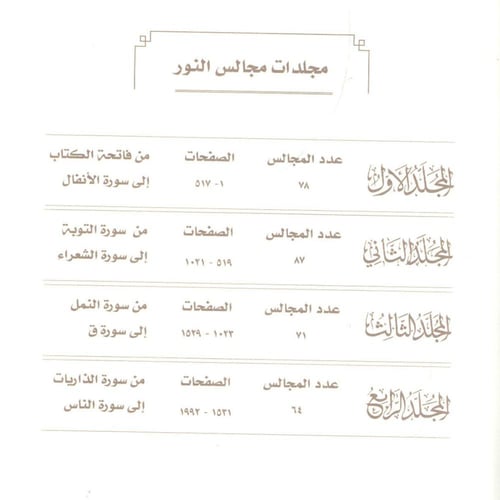 مجلدات مجالس النور
المجلد الأول
عدد المجالس الصفحات من فاتحة الكتاب
٧٨ ١- ٥١٧ إلى سورة الأنفال
المجلد الثاني
عدد المجالس الصفحات من سورة التوبة
٨٧ ٥١٩ - ١٠٢١ إلى سورة الشعراء
المجلد الثالث
عدد المجالس الصفحات من سورة النمل
٧١ ١٠٢٣ - ١٥٢٩ إلى سورة ق
المجلد الرابع
عدد المجالس الصفحات من سورة الذاريات
٦٤ ١٥٣١ - ١٩٩٢ إلى سورة الناس